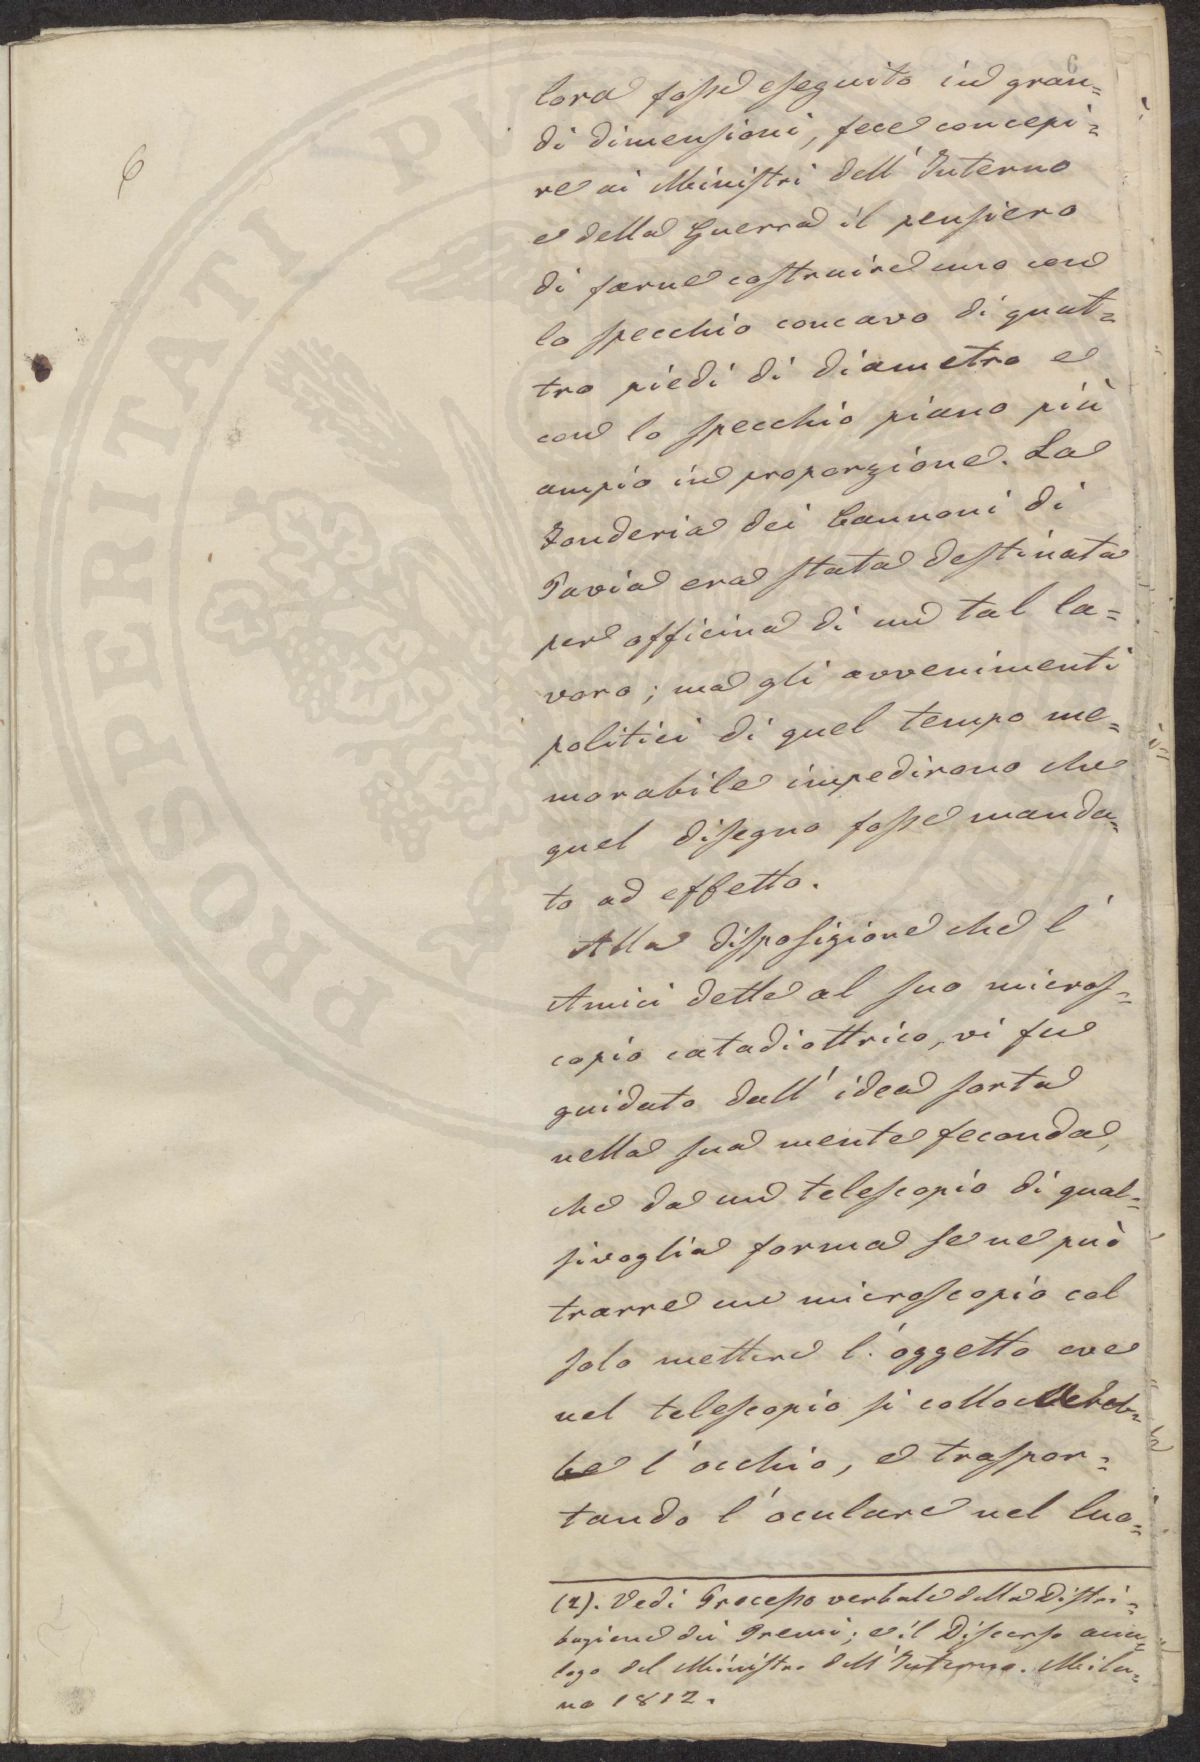 6
6
lora fosse eseguito in gran=
di dimensioni, fece concepi=
re ai Ministri dell'Interno
e della Guerra il pensiero
di farne costruire uno con
lo specchio concavo di quat=
tro piedi di diametro e
con lo specchio piano più
ampio in proporzione. La
Fonderia dei Cannoni di
Pavia era stata destinata
per officina di un tal la=
voro; ma gli avvenimenti
politici di quel tempo me=
morabile impedirono che
quel disegno fosse manda=
to ad effetto.
Alla disposizione che l'
Amici dette al suo micros=
copio catadiottrico, vi fu
guidato dall'idea sorta
nella sua mente feconda,
che da un telescopio di qual=
sivoglia forma se ne può
trarre un microscopio col
solo mettere l'oggetto ove
nel telescopio si collochereb=
be l'occhio, e traspor=
tando l'oculare nel luo=
(2). Vedi Processo verbale della Distri=
buzione dei Premi; e il Discorso ana=
logo del Ministro dell'Interno. Mila=
no 1812.
PROSPERITATI PU